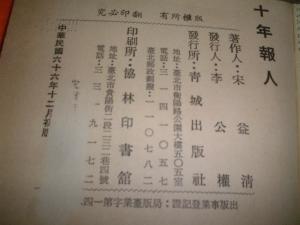 十年報人
著作人：宋益清
發行人：李公權
發行所：青城出版社
地址：臺北市衡陽路公園大樓五〇五室
電話：三一四一〇五七
臺北郵政劃撥：一一〇七八二
印刷所：協林印書館
地址：臺北市貴陽街二段二三二巷四號
電話：三三一九一七二
中華民國六十六年十二月初版
版權所有 翻印必究
出版事業登記證：局版臺業字第一四